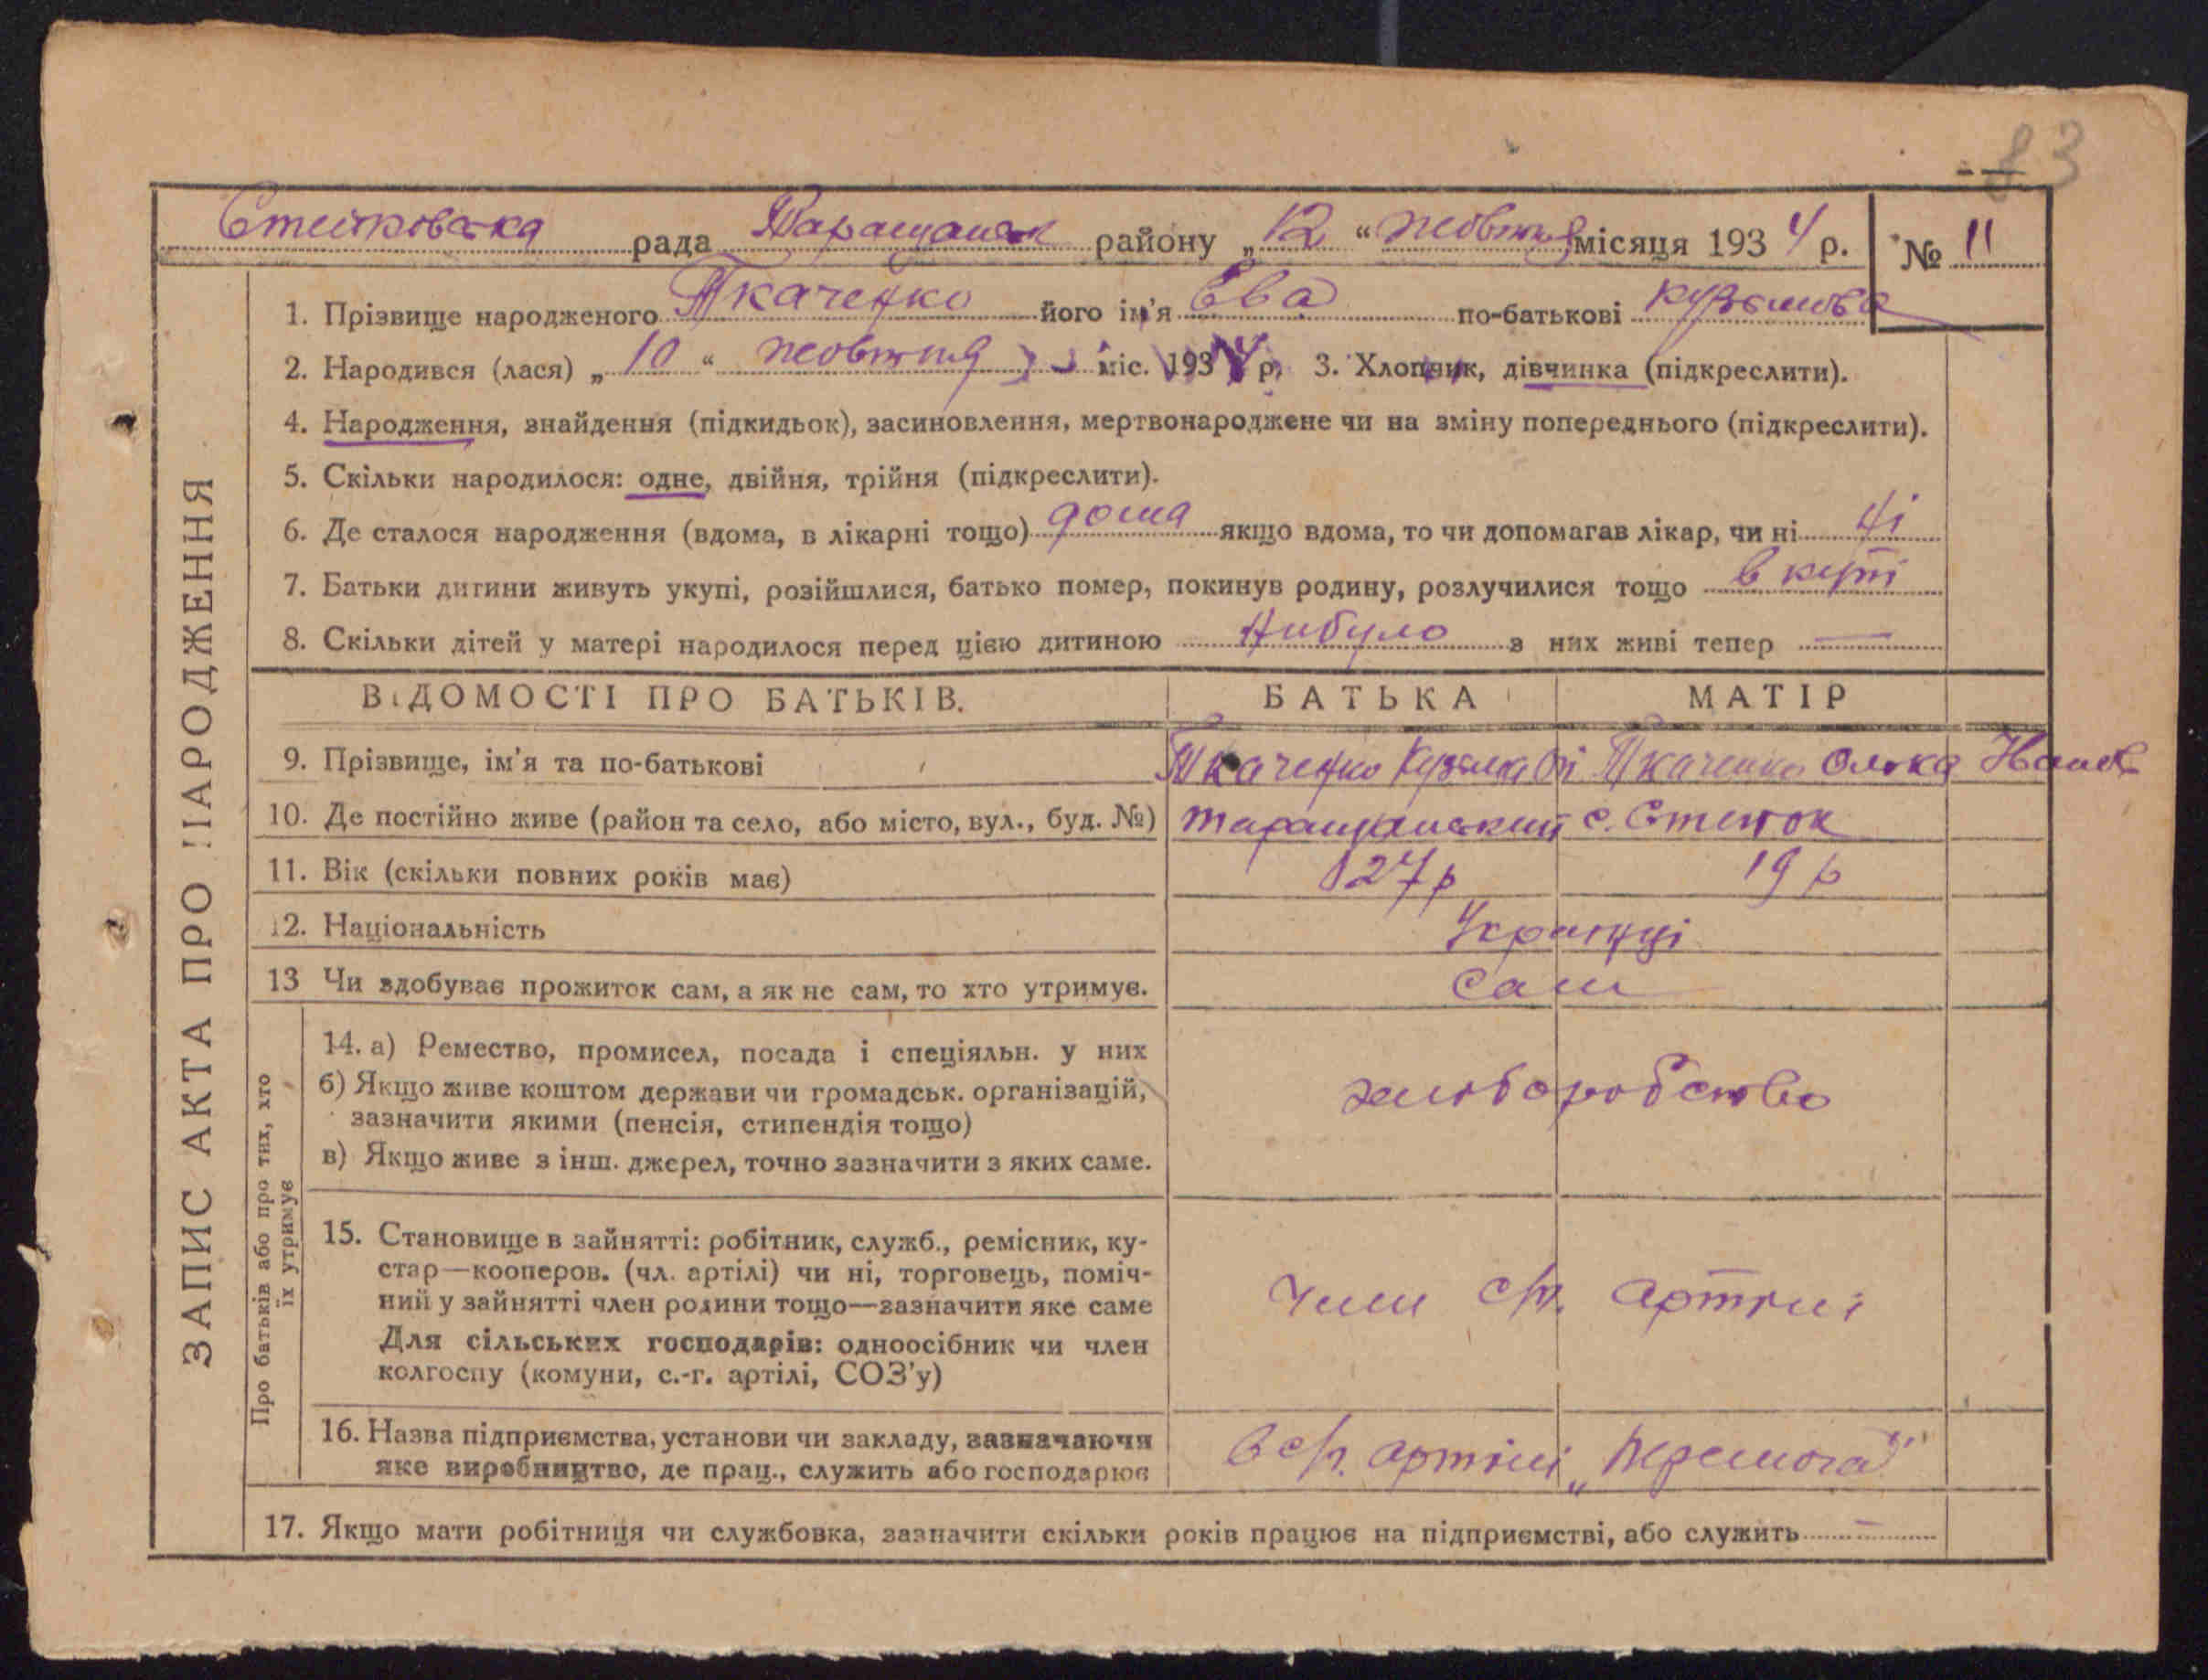 83
Стинковська рада Таращанськ району „12“ жовтня місяця 1934 р. № 11
ЗАПИС АКТА ПРО НАРОДЖЕННЯ
1. Прізвище народженого Ткаченко його ім'я Ева по-батькові Кузьмова
2. Народився (лася) „10“ жовтня міс. 1934 р. 3. Хлопчик, дівчинка (підкреслити).
4. Народження, знайдення (підкидьок), засиновлення, мертвонароджене чи на зміну попереднього (підкреслити).
5. Скільки народилося: одне, двійня, трійня (підкреслити).
6. Де сталося народження (вдома, в лікарні тощо) дома якщо вдома, то чи допомагав лікар, чи ні ні
7. Батьки дитини живуть укупі, розійшлися, батько помер, покинув родину, розлучилися тощо в купі
8. Скільки дітей у матері народилося перед цією дитиною нибуло з них живі тепер —
ВІДОМОСТІ ПРО БАТЬКІВ. БАТЬКА МАТІР
9. Прізвище, ім'я та по-батькові Ткаченко Кузьма Ткаченко Олєка Иванов
10. Де постійно живе (район та село, або місто, вул., буд. №) Таращанський с. Степок
11. Вік (скільки повних років має) 27 р 19 р
12. Національність Українці
13 Чи здобуває прожиток сам, а як не сам, то хто утримує. Сам
Про батьків або про тих, хто
їх утримує
14. а) Ремество, промисел, посада і спеціяльн. у них
б) Якщо живе коштом держави чи громадськ. організацій,
зазначити якими (пенсія, стипендія тощо)
в) Якщо живе з інш. джерел, точно зазначити з яких саме.
хліборобство
15. Становище в зайнятті: робітник, служб., ремісник, ку-
стар—кооперов. (чл. артілі) чи ні, торговець, поміч-
ний у зайнятті член родини тощо—зазначити яке саме
Для сільських господарів: одноосібник чи член
колгоспу (комуни, с.-г. артілі, СОЗ'у)
Член с/г. артілі
16. Назва підприємства, установи чи закладу, зазначаючи
яке виробництво, де прац., служить або господарює
в с/г. артілі „Перемога"
17. Якщо мати робітниця чи службовка, зазначити скільки років працює на підприємстві, або служить —